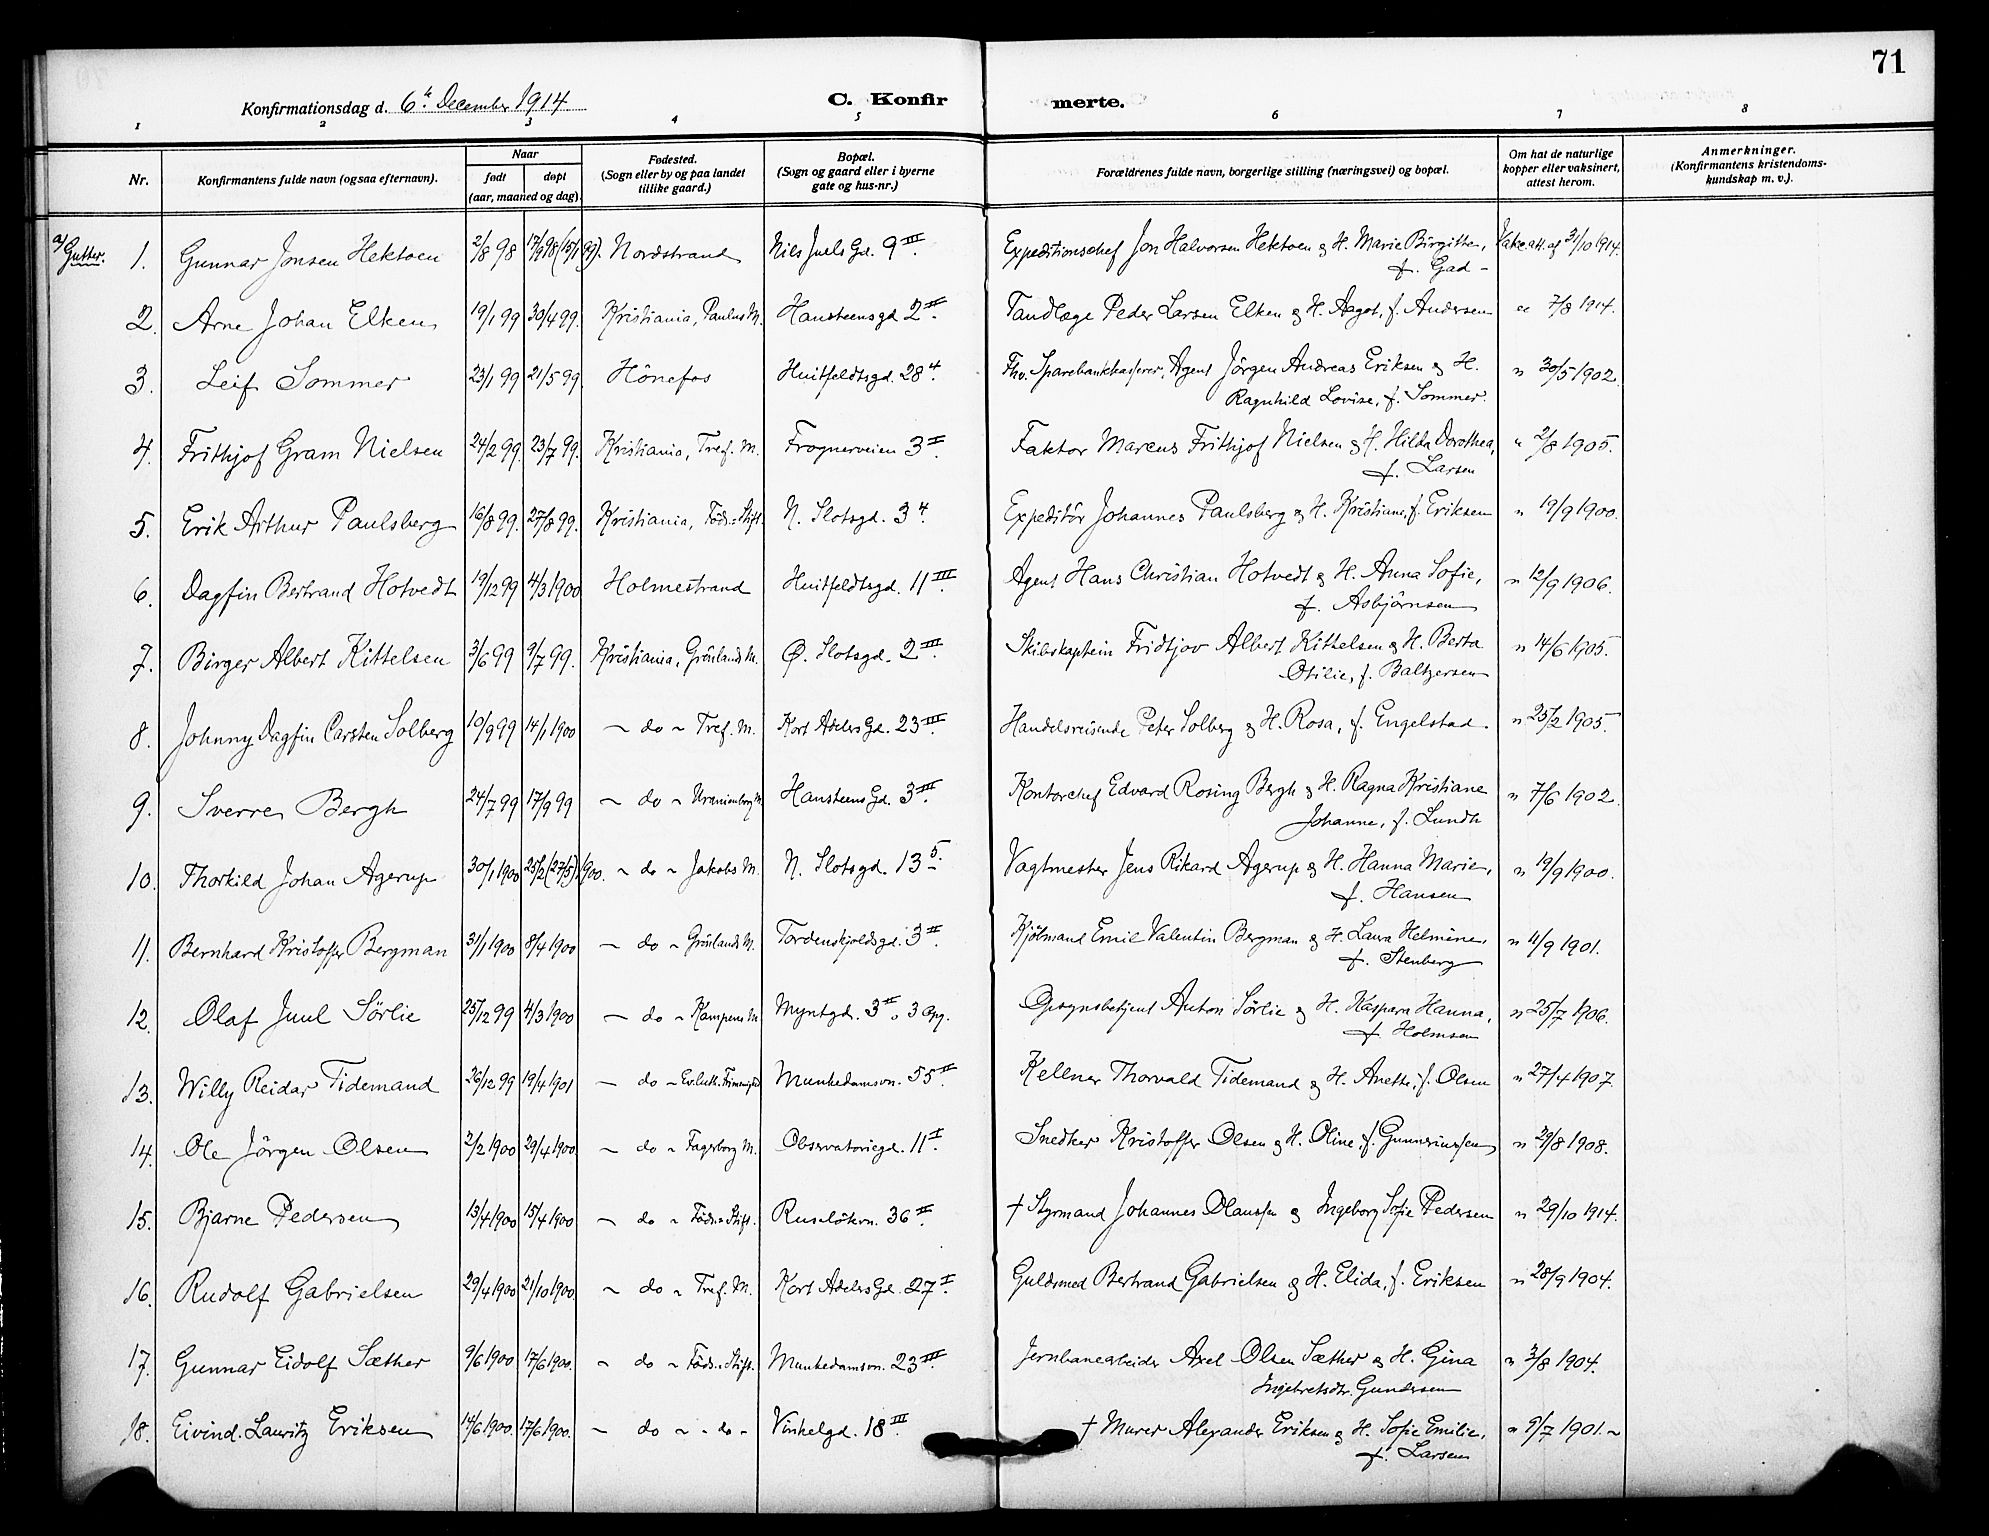 71
Konfirmationsdag d. 6te December 1914
C. Konfirmerte.
1 2 3 4 5 6 7 8
Nr.
Konfirmantens fulde navn (ogsaa efternavn).
Naar
født
døpt
(aar, maaned og dag).
Fødested.
(Sogn eller by og paa landet
tillike gaard.)
Bopæl.
(Sogn og gaard eller i byerne
gate og hus-nr.)
Forældrenes fulde navn, borgerlige stilling (næringsvei) og bopæl.
Om hat de naturlige
kopper eller vaksinert,
attest herom.
Anmerkninger.
(Konfirmantens kristendoms-
kundskap m. v.).
a/ Gutter.
1. Gunnar Jonsen Hektoen 2/8 98 17/9 98 (15/1 99). Nordstrand Niels Juels Gd. 9 III. Expeditionschef Jon Halvorsen Hektoen & H. Marie Birgitte, Vakc. att. af 31/10 1914.
f. Gad -
2. Arne Johan Elken 19/1 99 30/4 99. Kristiania, Paulus M. Hansteensgd. 2 II. Tandlæge Peder Larsen Elken & H. Aagot, f. Andersen " 7/8 1914.
3. Leif Sommer 23/1 99 21/5 99. Hönefos Huitfeldtsgd. 28 4. Fhv. Sparebankkasserer, Agent Jörgen Andreas Eriksen & H. " 30/5 1902.
Ragnhild Lovise, f. Sommer.
4. Frithjof Gram Nielsen 24/2 99. 23/7 99. Kristiania, Tref. M. Frognerveien 3 II. Faktor Marcus Frithjof Nielsen & H. Hilda Dorothea, " 2/8 1905.
f. Larsen
5. Erik Arthur Paulsberg 16/8 99. 27/8 99. Kristiania, Föds.-Stift. N. Slotsgd. 3 4. Expeditör Johannes Paulsberg & H. Kristiane, f. Eriksen " 19/9 1900.
6. Dagfin Bertrand Hotvedt 19/12 99 4/3 1900 Holmestrand Huitfeldtsgd. 11 III. Agent Hans Christian Hotvedt & H. Anna Sofie, " 12/9 1906.
f. Asbjörnsen
7. Birger Albert Kittelsen 3/6 99 9/7 99. Kristiania, Grönlands M. Ø. Slotsgd. 2 III. Skibskaptein Fridtjov Albert Kittelsen & H. Berta " 14/6 1905.
Otilie, f. Baltzersen
8. Johnny Dagfin Carsten Solberg 10/9 99 14/1 1900 - do - Tref. M. Kort Adelers Gd. 23 III. Handelsreisende Peter Solberg & H. Rosa, f. Engelstad. " 25/2 1905.
9. Sverre Bergh 24/7 99 17/9 99 - do - Uranienborg M. Hansteens Gd. 3 III. Kontorchef Edvard Rosing Bergh & H. Ragna Kristiane " 7/6 1902.
Johanne, f. Lundh
10. Thorkild Johan Agerup 30/1 1900 25/2 (27/5) 1900. - do - Jakobs M. N. Slotsgd. 13 5. Vagtmester Jens Rikard Agerup & H. Hanna Marie, " 19/9 1900.
f. Hansen
11. Bernhard Kristoffer Bergman 31/1 1900 8/4 1900 - do - Grönlands M. Tordenskjoldsgd. 3 II. Kjölmand Emil Valentin Bergman & H. Laura Helmine, " 11/9 1901.
f. Stenberg
12. Olaf Juul Sörlie 25/12 99 4/3 1900 - do - Kampens M. Myntgd. 3 II, 3 opg. Opsynsbetjent Anton Sörlie & H. Kaspara Hanna, " 25/7 1906.
f. Holmsen
13. Willy Reidar Tidemand 26/12 99 19/4 1901 - do - Ev. luth. Frimenighed Munkedamsvn. 55 II. Kellner Thorvald Tidemand & H. Anette, f. Olsen " 27/4 1907.
14. Ole Jörgen Olsen 2/2 1900 29/4 1900. - do - Fagerborg M. Observatoriegd. 11 I. Snedker Kristoffer Olsen & H. Oline, f. Gunneriussen " 29/8 1908.
15. Bjarne Pedersen 13/4 1900 15/4 1900 - do - Föds.-Stift. Ruselökvn. 36 II. † Styrmand Johannes Olaussen & Ingeborg Sofie Pedersen " 29/10 1914.
16. Rudolf Gabrielsen 29/4 1900 21/10 1900 - do - Tref. M. Kort Adelers Gd. 27 I. Guldsmed Bertrand Gabrielsen & H. Elida, f. Eriksen " 28/9 1904.
17. Gunnar Eidolf Sæther 9/6 1900 17/6 1900. - do - Föds.-Stift. Munkedamsvn. 23 III Jernbanearbeider Axel Olsen Sæther & H. Gina " 3/8 1904.
Ingebretsdtr. Gundersen
18. Eivind Lauritz Eriksen 14/6 1900. 17/6 1900. - do - - do - Vinkelgd. 18 III. † Murer Alexander Eriksen & H. Sofie Emilie, " 5/7 1901. -
f. Larsen